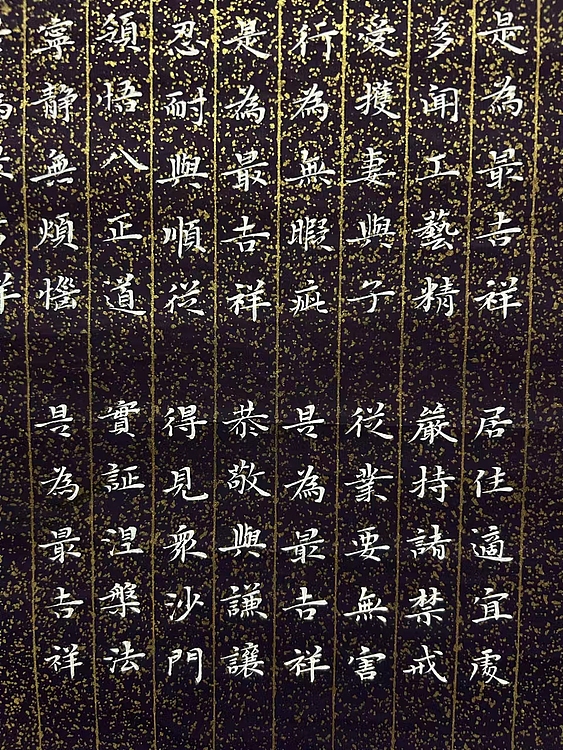 是為最吉祥　居住適宜處
多聞工藝精　嚴持諸禁戒
愛擭妻與子　従業要無害
行為無暇疵　是為最吉祥
是為最吉祥　恭敬與謙讓
忍耐與順従　得見眾沙門
須悟八正道　實証涅槃法
寧静無煩惱　是為最吉祥